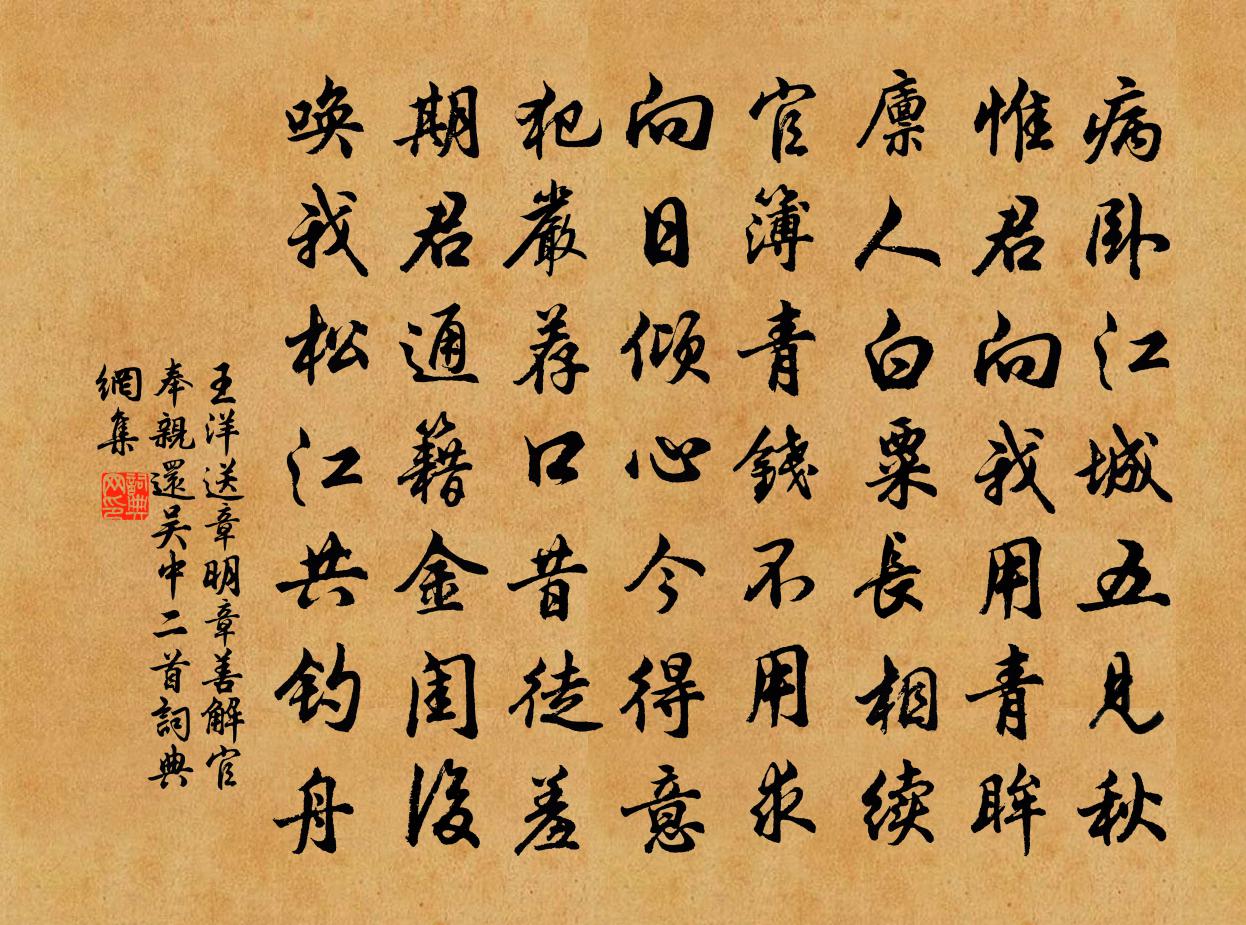 病卧江城五见秋
惟君向我用青眸
廪人白粟長相续
官簿青錢不用求
向日倾心今得意
犯嚴荐口昔徒羞
期君通籍金閨後
唤我松江共钓舟
王洋送章明章善解官
奉親還吴中二首詞典
網集
詞典
网印